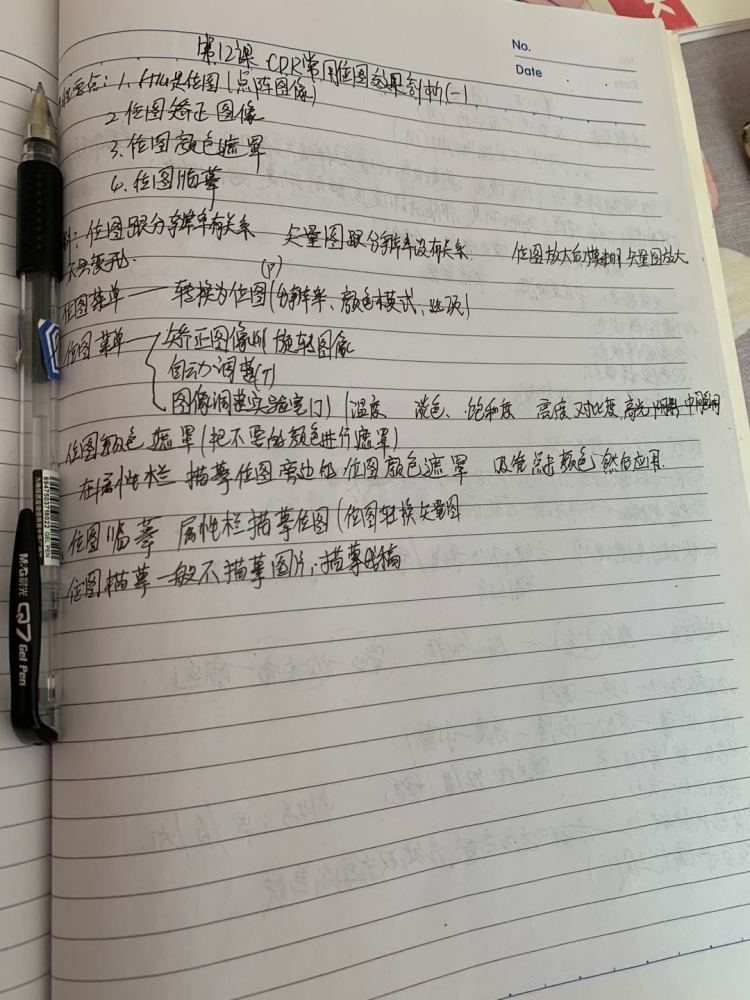 No.
Date
第12课 CDR常用位图效果剖析(一)
要点：1.什么是位图(点阵图像)
2.位图矫正图像
3.位图颜色遮罩
4.位图临摹
位图跟分辨率有关系 矢量图跟分辨率没有关系 位图放大后模糊 矢量图放大
不易变形
位图菜单——转换为位图(分辨率、颜色模式、选项)
位图菜单——矫正图像 旋转图像
自动调整(T)
图像调整实验室(J) (温度 淡色、饱和度 亮度 对比度 高光 阴影 中间调
位图颜色遮罩(把不要的颜色进行遮罩)
在属性栏 描摹位图旁边的位图颜色遮罩 吸管点击颜色 然后应用
位图临摹 属性栏描摹位图(位图转换矢量图
位图描摹一般不描摹图片,描摹线稿
M&G 晨光
Q7
Gel Pen